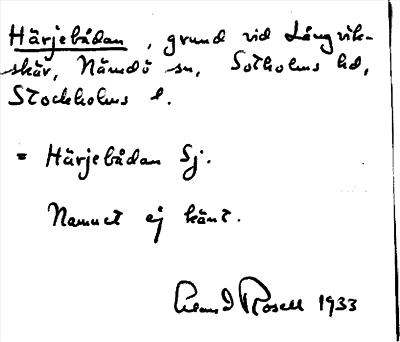 Härjebådan, grund vid Långvik-
skär, Nämdö sn, Sotholms hd,
Stockholms l.
= Härjebådan Sj.
Namnet ej känt.
Rosell 1933